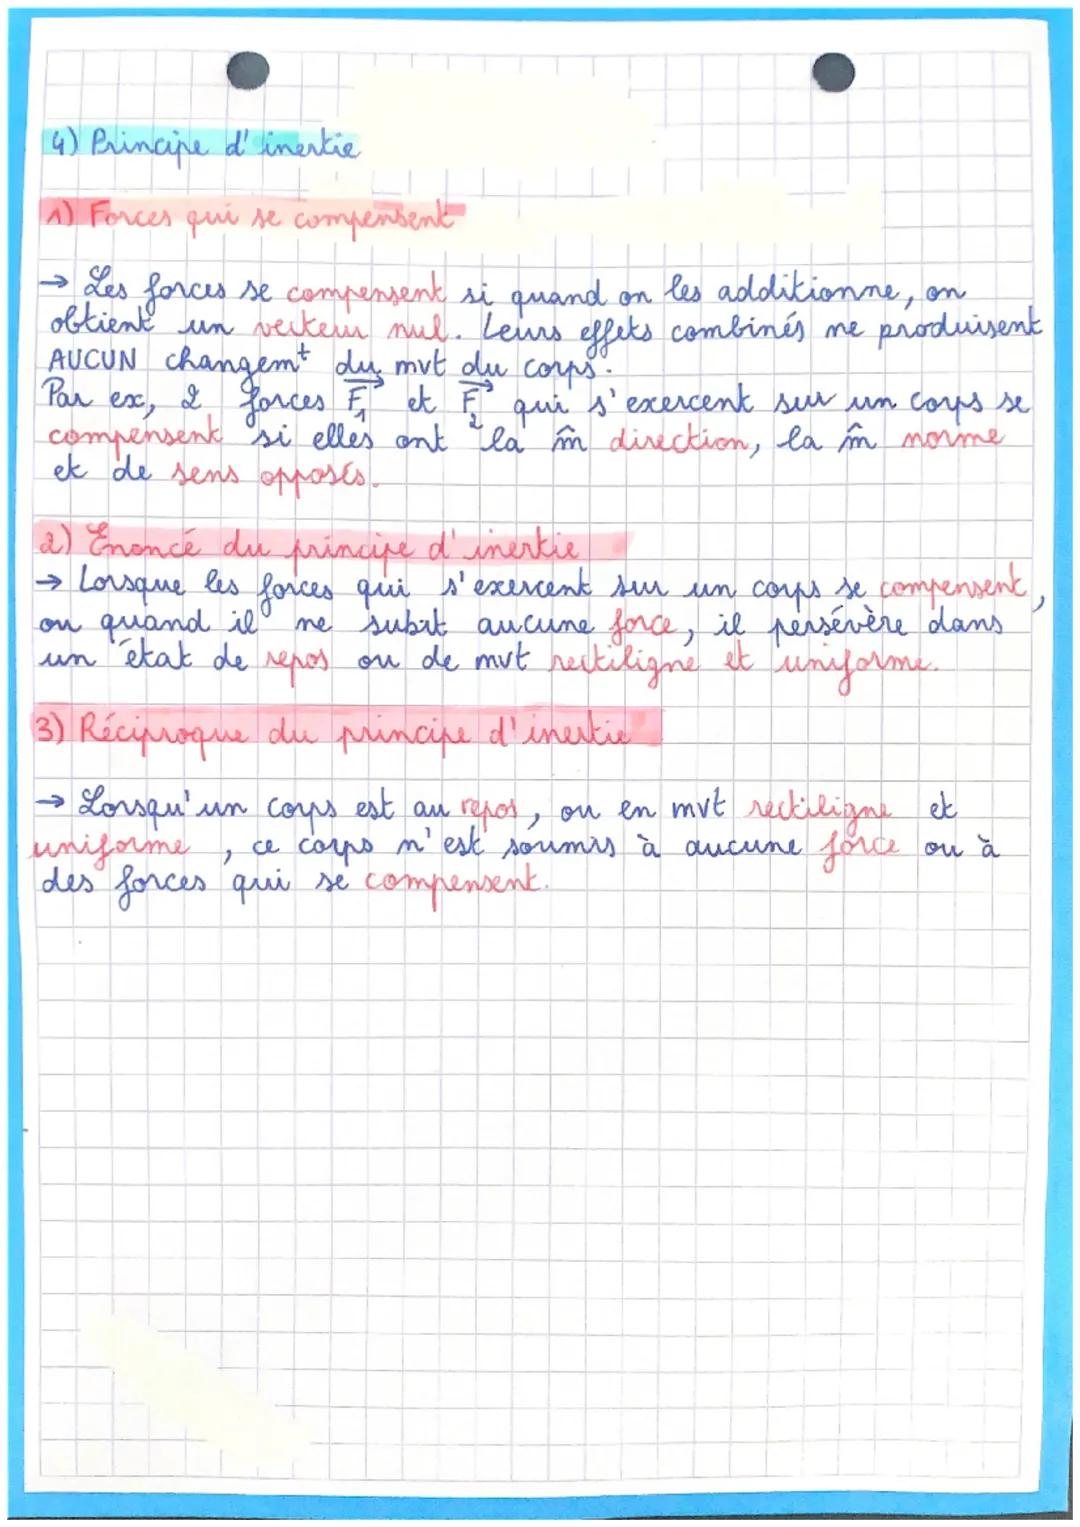 4) Principe d'inertie
1) Forces qui se compensent
→ Les forces se compensent si quand on les additionne, on
obtient un vecteur nul. Leurs effets combinés ne produisent
AUCUN changemt du mvt du corps.
Par ex, 2 forces F₁ et F₂ qui s'exercent sur un corps se
compensent si elles ont la m̂ direction, la m̂ norme
et de sens opposés.
2) Énoncé du principe d'inertie
→ Lorsque les forces qui s'exercent sur un corps se compensent,
ou quand il ne subit aucune force, il persévère dans
un état de repos ou de mvt rectiligne et uniforme.
3) Réciproque du principe d'inertie
→ Lorsqu'un corps est au repos, ou en mvt rectiligne et
uniforme, ce corps n'est soumis à aucune force ou à
des forces qui se compensent.